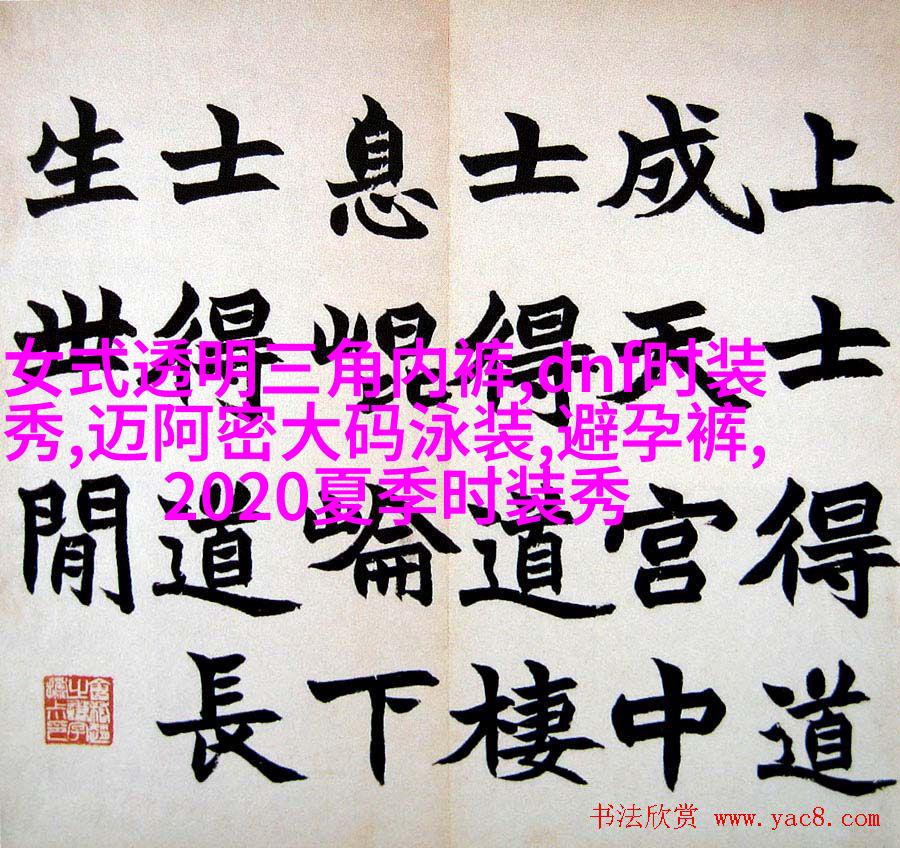 上士得道
成天宫中
士得道棲
息崐崘下
士得道長
生世閒
女式透明三角内裤,dnf时装
秀,迈阿密大码泳装,避孕裤,
2020夏季时装秀
书法欣赏 www.yac8.com